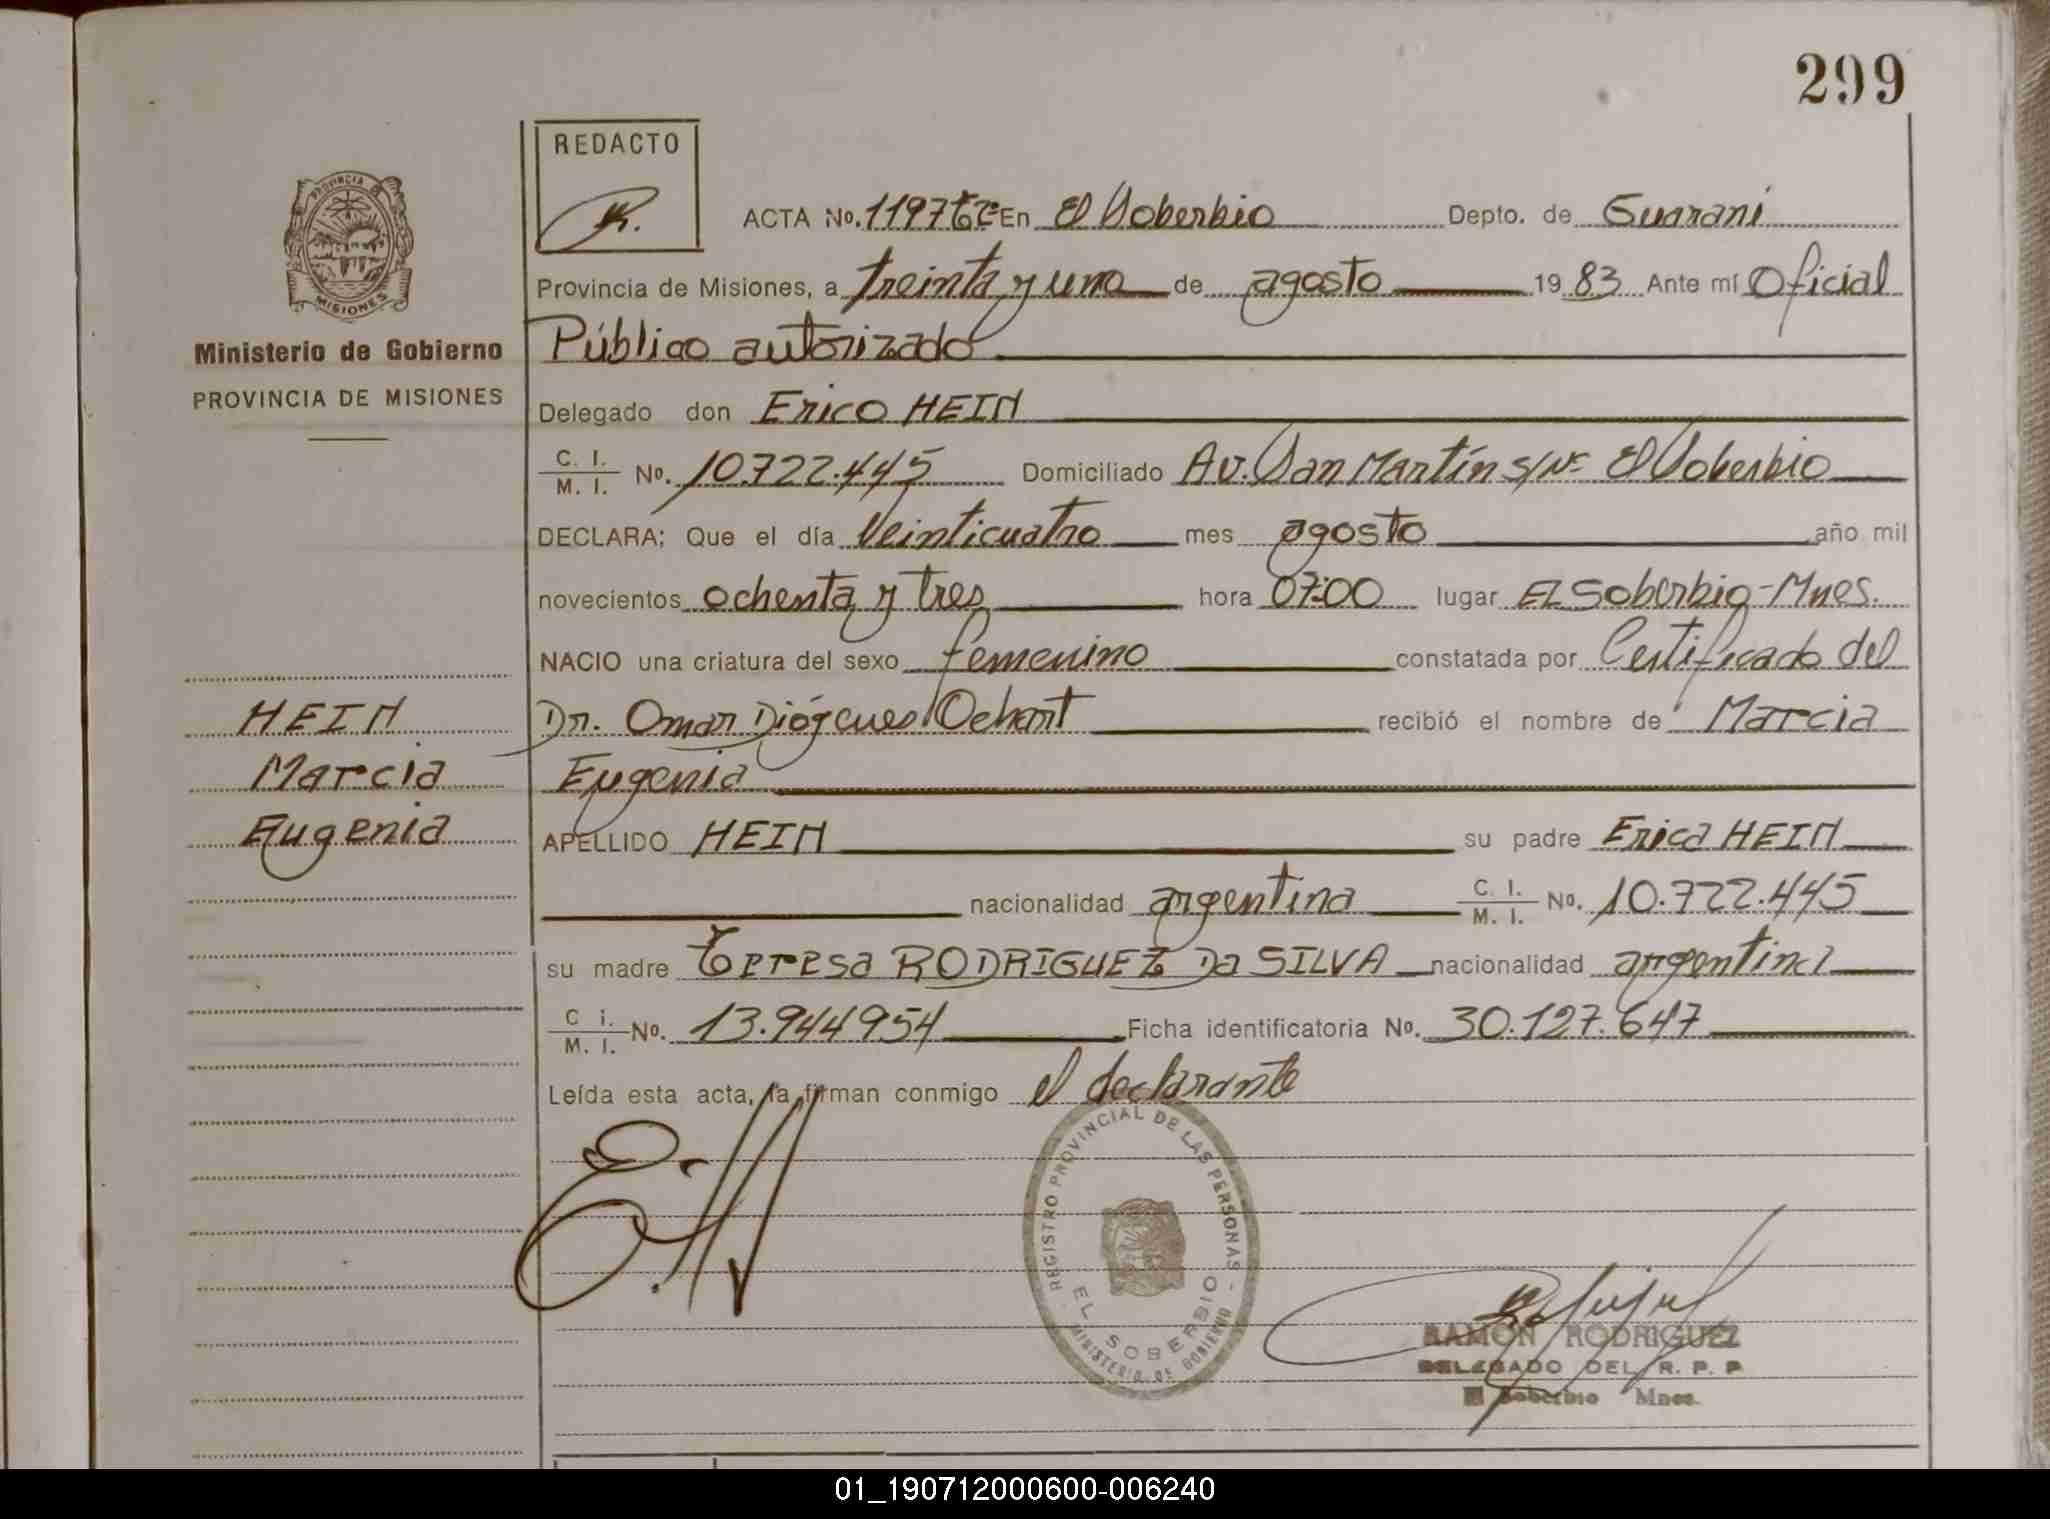 299
REDACTO
PROVINCIA
MISIONES
Ministerio de Gobierno
PROVINCIA DE MISIONES
ACTA No. 1197 En El Soberbio Depto. de Guarani
Provincia de Misiones, a treinta y uno de agosto 19 83 Ante mí Oficial
Público autorizado
Delegado don Erico HEIN
C. I.
M. I. No. 10.722.445 Domiciliado Av. San Martín s/Nº El Soberbio
DECLARA; Que el día Veinticuatro mes agosto año mil
novecientos ochenta y tres hora 07:00 lugar EL Soberbio-Mnes.
NACIO una criatura del sexo femenino constatada por Certificado del
Dr. Omar Diógenes recibió el nombre de Marcia
Eugenia
HEIN
Marcia
Eugenia
APELLIDO HEIN su padre Erico HEIN
nacionalidad argentina C. I.
M. I. No. 10.722.445
su madre Teresa RODRIGUEZ Da SILVA nacionalidad argentina
C i.
M. I. No. 13.944954 Ficha identificatoria No. 30.127.647
Leída esta acta, la firman conmigo el declarante
REGISTRO PROVINCIAL DE LAS PERSONAS - MINISTERIO DE GOBIERNO
EL SOBERBIO
RAMON RODRIGUEZ
DELEGADO DEL R. P. P
El Soberbio Mnes.
01_190712000600-006240